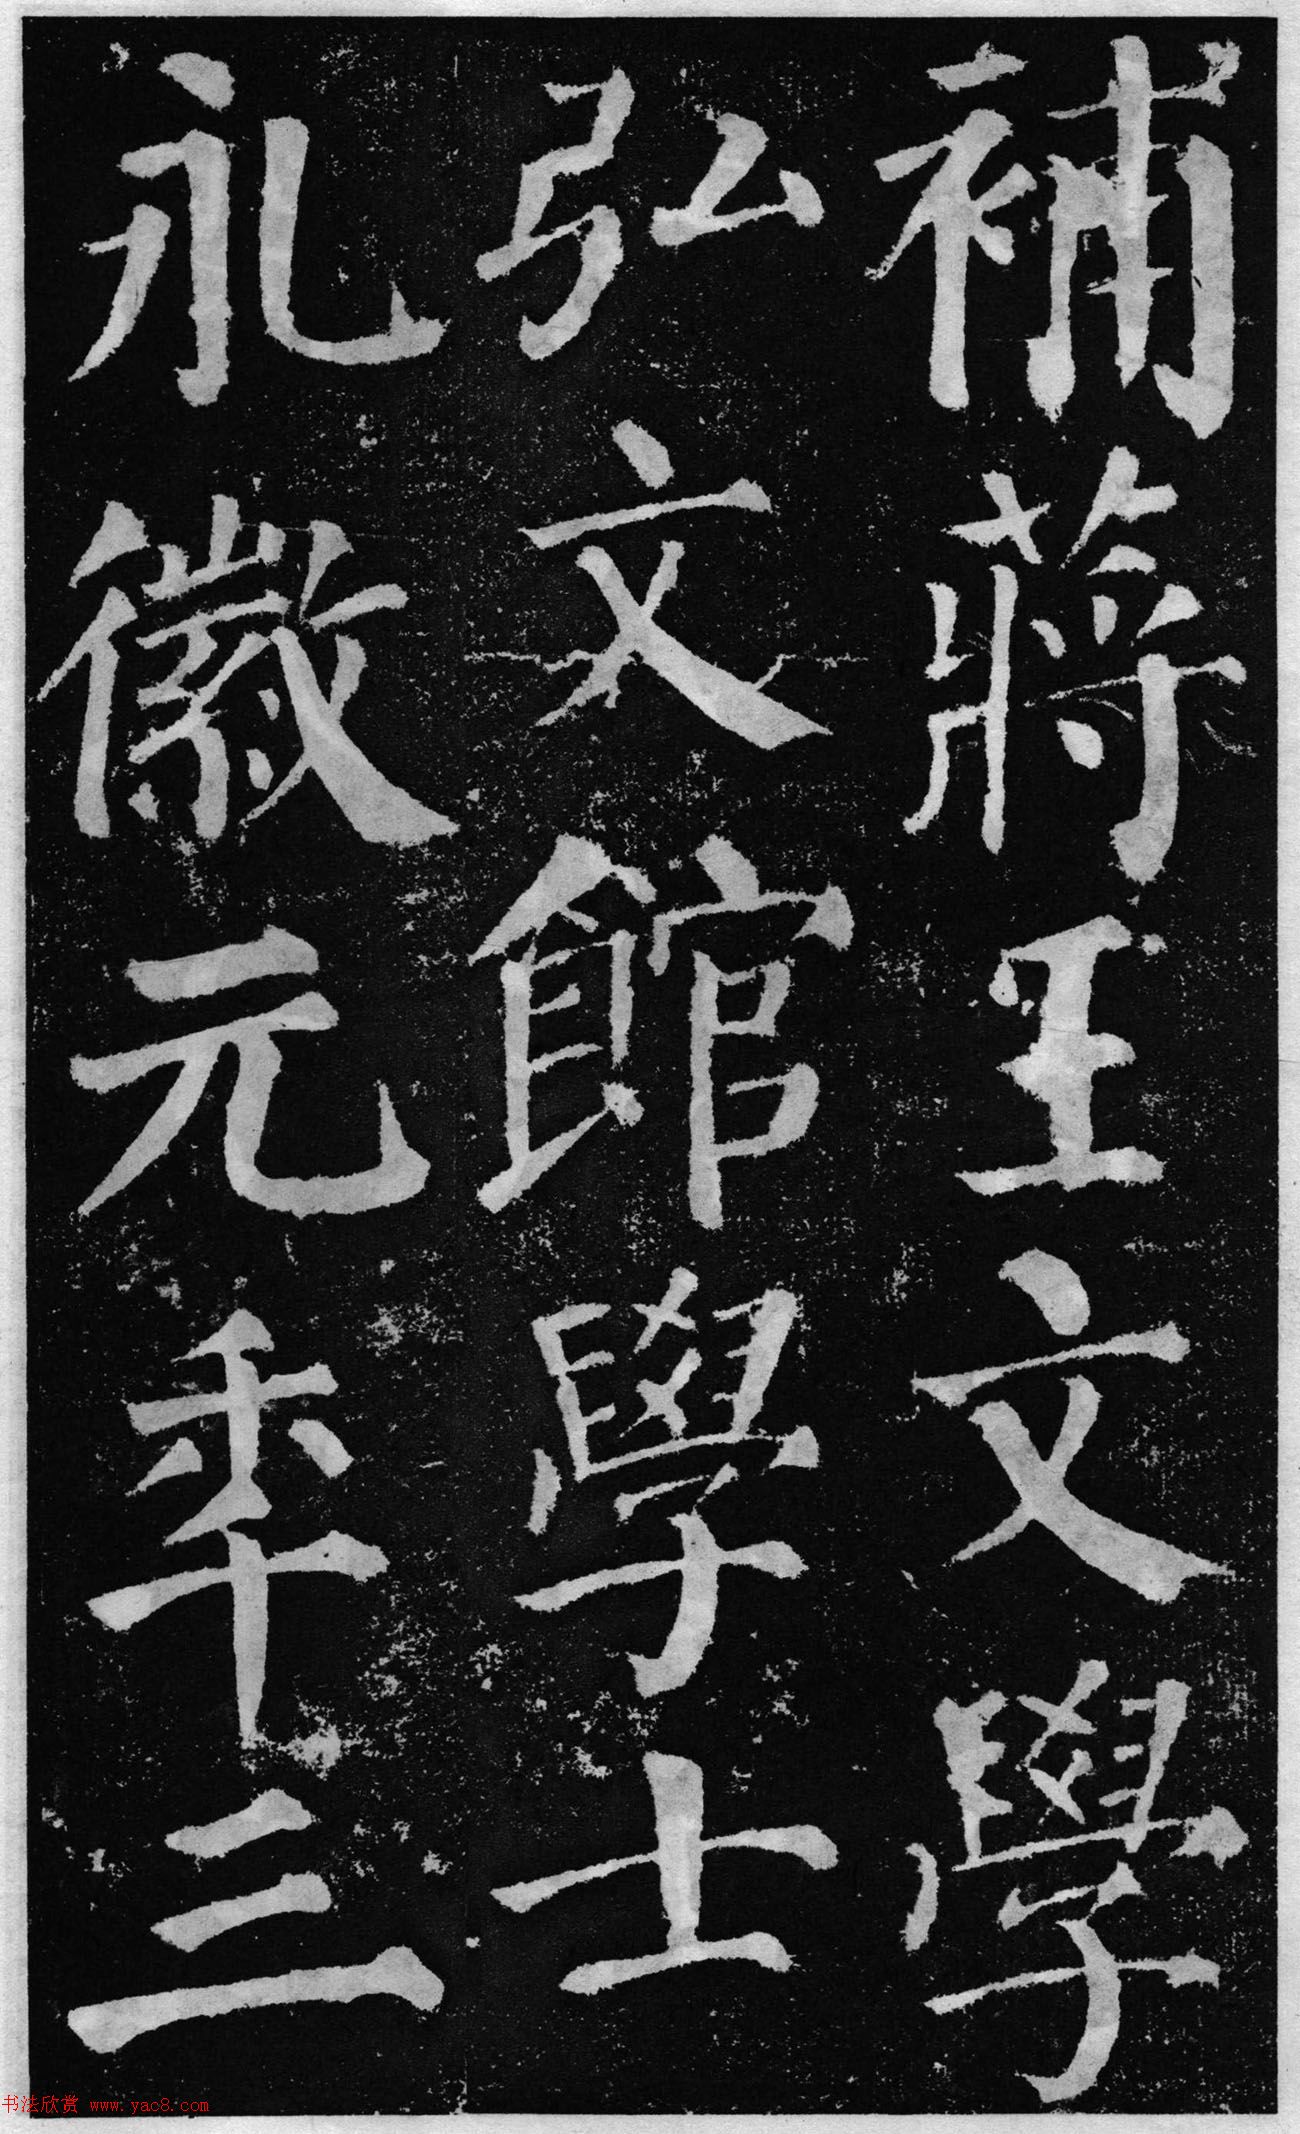 補蔣王文學
弘文館學士
永徽元年三
书法欣赏 www.yac8.com